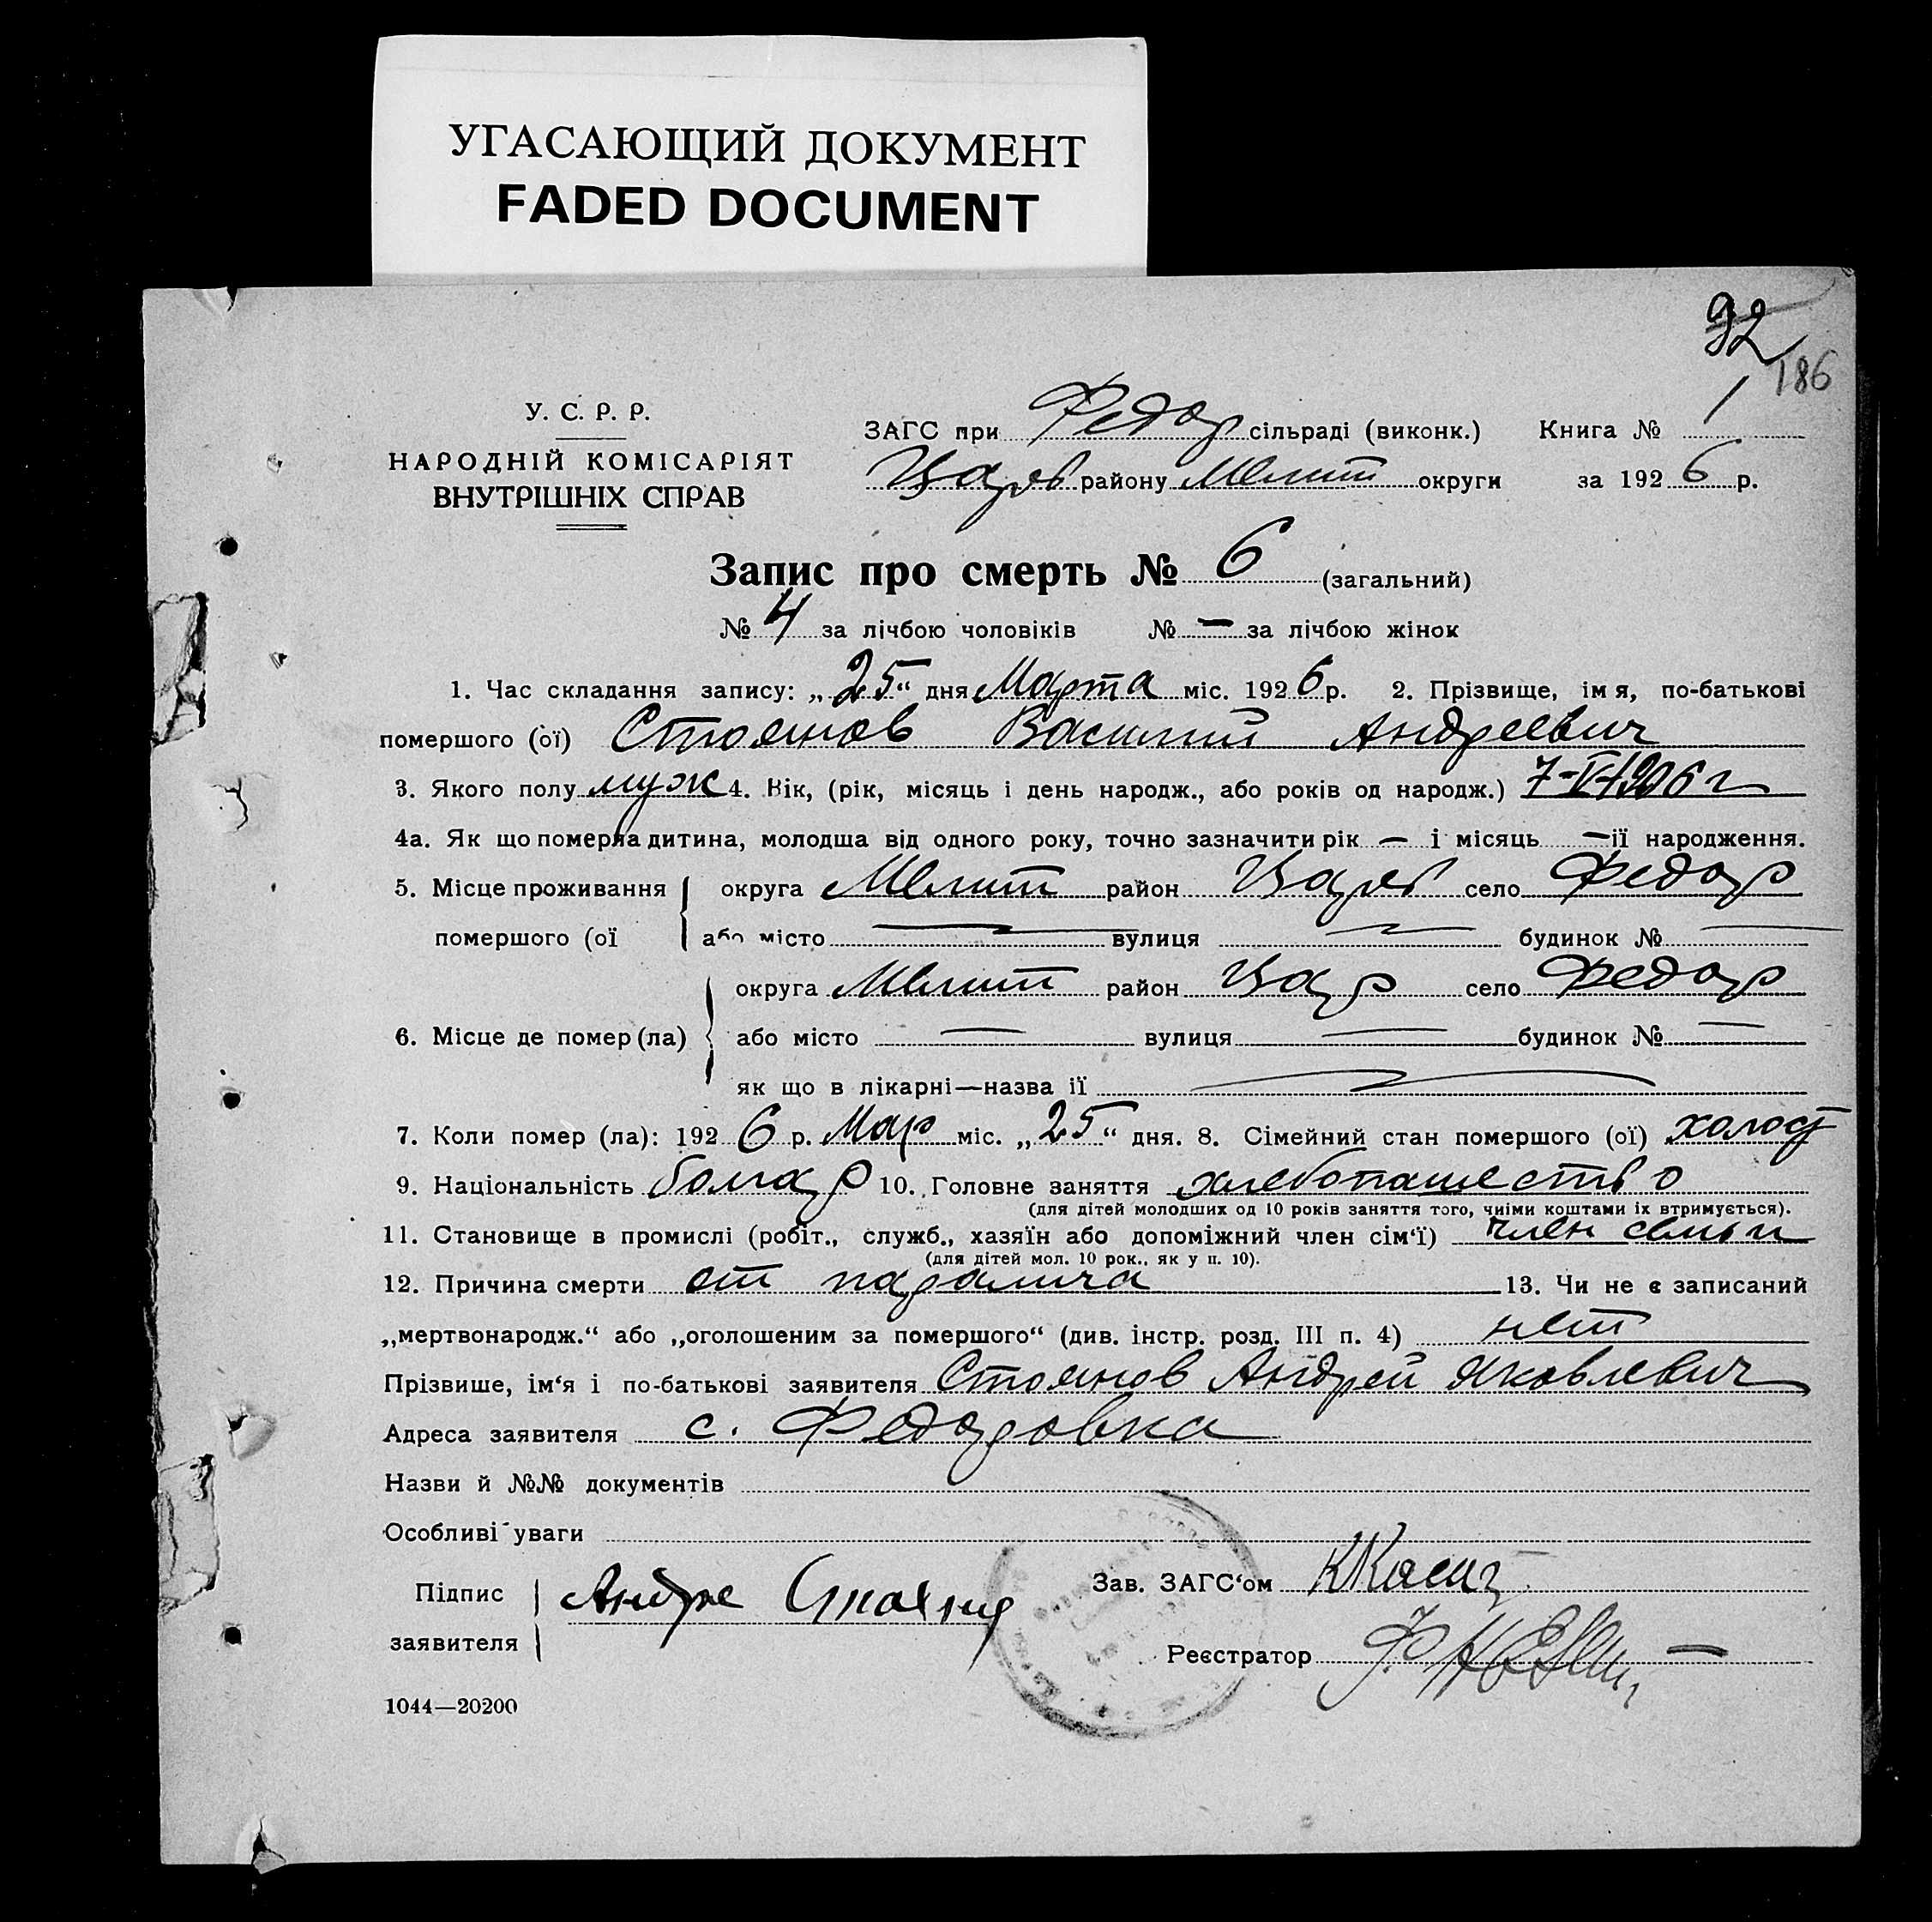 УГАСАЮЩИЙ ДОКУМЕНТ
FADED DOCUMENT
92
186
У. С. Р. Р.
НАРОДНІЙ КОМІСАРІЯТ
ВНУТРІШНІХ СПРАВ
ЗАГС при Федор сільраді (виконк.) Книга № 1
Царев району Мелит округи за 1926 р.
Запис про смерть № 6 (загальний)
№ 4 за лічбою чоловіків № — за лічбою жінок
1. Час складання запису: „25“ дня Марта міс. 1926 р. 2. Прізвище, імя, по-батькові
помершого (ої) Стоянов Василий Андреевич
3. Якого полу муж 4. Вік, (рік, місяць і день народж., або років од народж.) 7-VI-1906 г
4а. Як що померла дитина, молодша від одного року, точно зазначити рік — і місяць — її народження.
5. Місце проживання округа Мелит район Царев село Федор
помершого (ої або місто — вулиця — будинок № —
округа Мелит район Цар село Федор
6. Місце де помер (ла) або місто — вулиця — будинок № —
як що в лікарні—назва її —
7. Коли помер (ла): 1926 р. Мар міс. „25“ дня. 8. Сімейний стан помершого (ої) холост
9. Національність болгар 10. Головне заняття хлебопашество
(для дітей молодших од 10 років заняття того, чиїми коштами їх втримується).
11. Становище в промислі (робіт., служб., хазяїн або допоміжний член сім‘ї) член семьи
(для дітей мол. 10 рок., як у п. 10).
12. Причина смерти от паралича 13. Чи не є записаний
„мертвонародж.“ або „оголошеним за помершого“ (див. інстр. розд. III п. 4) нет
Прізвише, ім‘я і по-батькові заявителя Стоянов Андрей Яковлевич
Адреса заявителя с. Федоровка
Назви й №№ документів
Особливі уваги
Підпис Андре Стоянов
заявителя
Зав. ЗАГС‘ом
Реєстратор
1044—20200